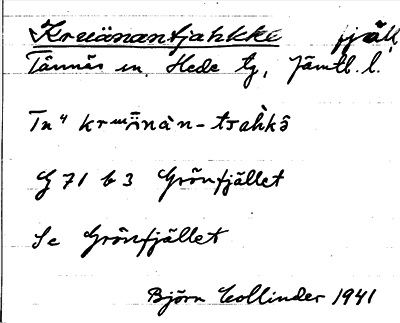 Kruänantjahkke fjäll
Tännäs sn. Hede tg, Jämtl. l.
G 71 b 3 Grönfjället
Se Grönfjället
Björn Collinder 1941